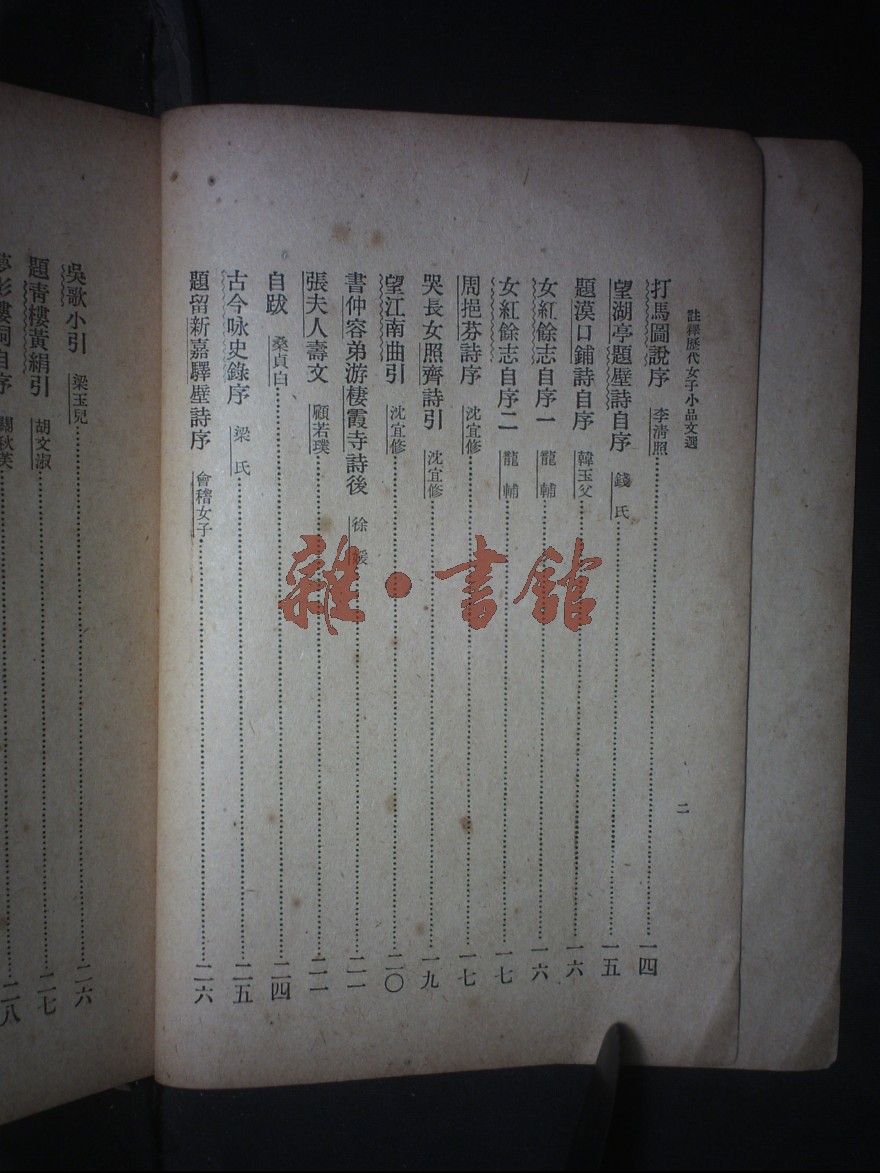 註釋歷代女子小品文選
二
打馬圖說序 李淸照 一四
望湖亭題壁詩自序 錢氏 一五
題漠口鋪詩自序 韓玉父 一六
女紅餘志自序一 龍輔 一六
女紅餘志自序二 龍輔 一七
周挹芬詩序 沈宜修 一七
哭長女照齊詩引 沈宜修 一九
望江南曲引 沈宜修 二〇
書仲容弟游棲霞寺詩後 徐媛 二一
張夫人壽文 顧若璞 二一
自跋 桑貞白 二四
古今咏史錄序 梁氏 二五
題留新嘉驛壁詩序 會稽女子 二六
吳歌小引 梁玉兒 二六
題靑樓黃絹引 胡文淑 二七
夢影樓詞自序 關秋芙 二八
雜·書館